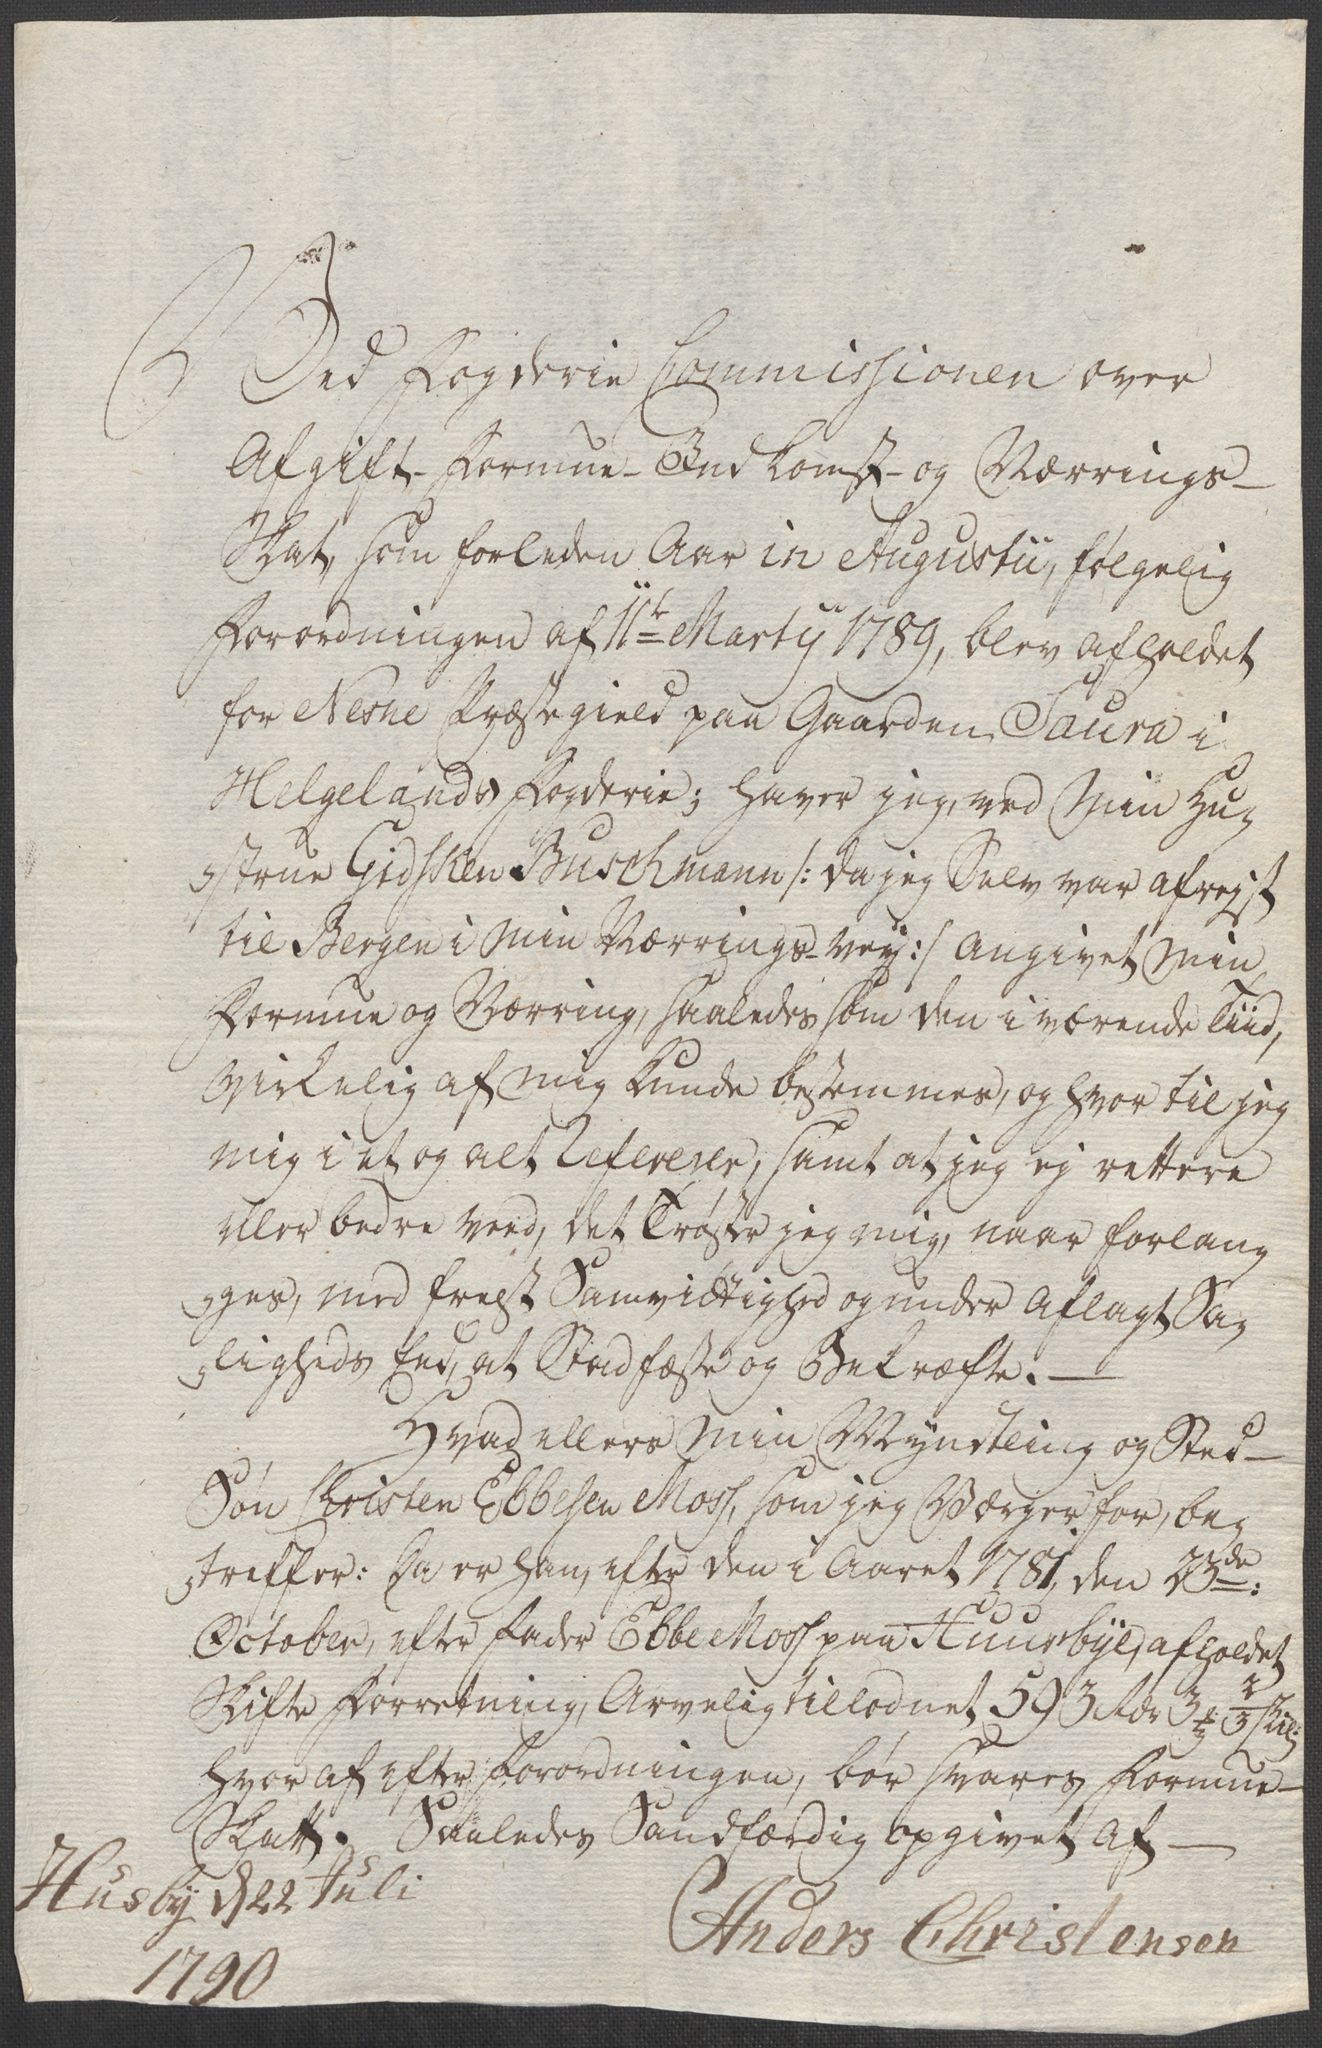 Ved Fogderie Commissionen over
Afgift- Formue- Indkomst- og Nærrings-
Skat, som forleden Aar in Augustii, følgelig
Forordningen af 11te Martij 1789, blev afholdet
for Nesne Præstegield paa Gaarden Saura i
Helgelands Fogderie; haver jeg, ved Min Hu-
-strue Gidsken Buschmann /: da jeg Selv var afrejst
til Bergen i Min Nærrings-Vey :/ angivet Min
Formue og Nærring, saaledes som den i værende Tiid,
Virkelig af mig kunde bestemmes, og hvor til jeg
mig i et og alt Refererer, samt at jeg ej rettere
eller bedre veed, det Trøster jeg mig, naar forlan-
-ges, med frelst Samvittighed og under aflagt Sa-
-ligheds Eed, at Stadfæste og Bekræfte. —
Hvad ellers Min Myndtling og Sted-
Søn Christen Ebbesen Moss, som jeg Værger for, be-
-treffer: Da er han, efter den i Aaret 1781, den 23de:
October, efter Fader Ebbe Moss paa Huusbye, afholdet
Skifte Forretning, Arvelig tillodnet 593 rdr 3 ₰ 2/3 skil:
hvor af efter Forordningen, bør svares Formue-
Skatt. Saaledes Sandfærdig opgivet af —
Husbÿ d 22 Juli
1790
Anders Christensen